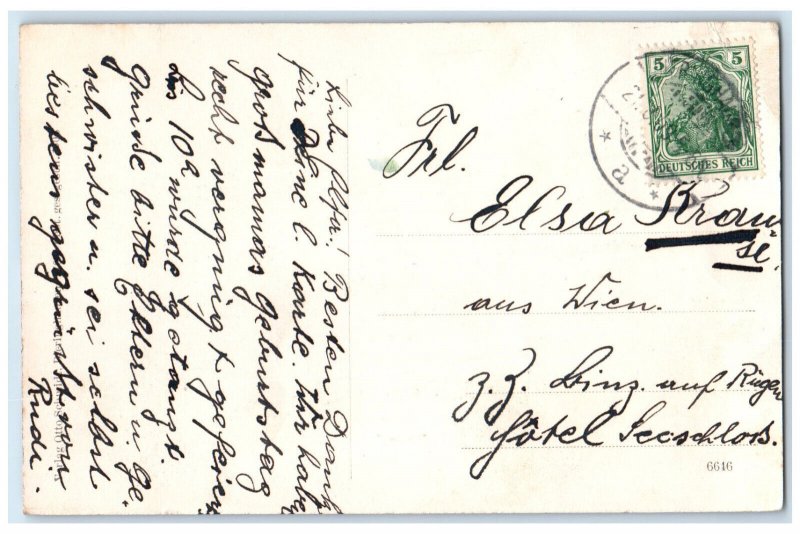 Liebe Elsa! Besten Dank
für Deine l. Karte. Wir haben
grossmamas geburtstag
recht vergnügt gefeiert
10 wurde getanzt.
Grüsse bitte Eltern u. Ge-
schwister u. sei selbst
bestens gegrüsst von
Rudi.
5 5
DEUTSCHES REICH
a
Frl.
Elsa Krau-
se.
aus Wien.
z. Z. Binz auf Rügen
Hôtel Seeschloß.
6646